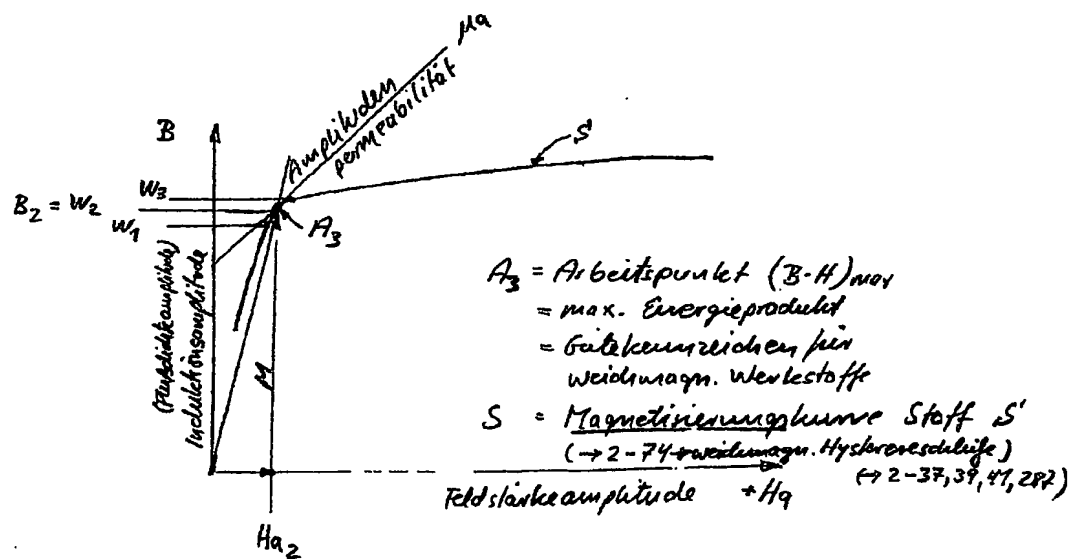 μa
Amplituden
permeabilität
B
S
W3
B2 = W2
W1
A3
(Flußdichteamplitude)
Induktionsamplitude
M
A3 = Arbeitspunkt (B-H)max
= max. Energieprodukt
= Gütekennzeichen für
weichmagn. Werkstoffe
S = Magnetisierungskurve Stoff S
(→ 2-74 weichmagn. Hystereseschleife)
(→ 2-37, 39, 41, 287)
Feldstärkeamplitude +Ha
Ha2